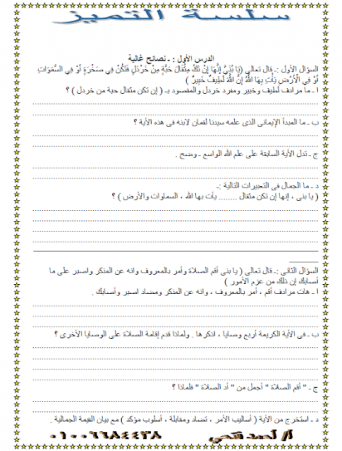 سلسلة التميز
الدرس الأول : - نصائح غالية
السؤال الأول :- قال تعالي (يَا بُنَيَّ إِنَّهَا إِنْ تَكُ مِثْقَالَ حَبَّةٍ مِنْ خَرْدَلٍ فَتَكُنْ فِي صَخْرَةٍ أَوْ فِي السَّمَوَاتِ
أَوْ فِي الْأَرْضِ يَأْتِ بِهَا اللَّهُ إِنَّ اللَّهَ لَطِيفٌ خَبِيرٌ )
ا - ما مرادف لطيف وخبير ومفرد خردل والمقصود بـ ( إن تكن مثقال حبة من خردل ) ؟
ب - ما المبدأ الإيماني الذي علمه سيدنا لقمان لابنه في هذه الآية ؟
ج - تدل الآية السابقة على علم الله الواسع - وضح .
د - ما الجمال في التعبيرات التالية :-
( يا بني ، إنها إن تكن مثقال ........ يأت بها الله ، السماوات والأرض ) ؟
السؤال الثاني :- قال تعالي ( يا بني أقم الصلاة وأمر بالمعروف وانه عن المنكر واصبر على ما
أصابك إن ذلك من عزم الأمور )
ا - هات مرادف أقم ، أمر بالمعروف ، وانه عن المنكر ومضاد اصبر وأصابك .
ب - في الآية الكريمة أربع وصايا ، اذكرها . ولماذا قدم إقامة الصلاة على الوصايا الأخرى ؟
ج - " أقم الصلاة " أجمل من " أد الصلاة " فلماذا ؟
د - استخرج من الآية ( أساليب الأمر ، تضاد ومقابلة ، أسلوب مؤكد ) مع بيان القيمة الجمالية .
أ/ أحمد فتحي ٠١٠٠٦٦٨٤٤٣٨